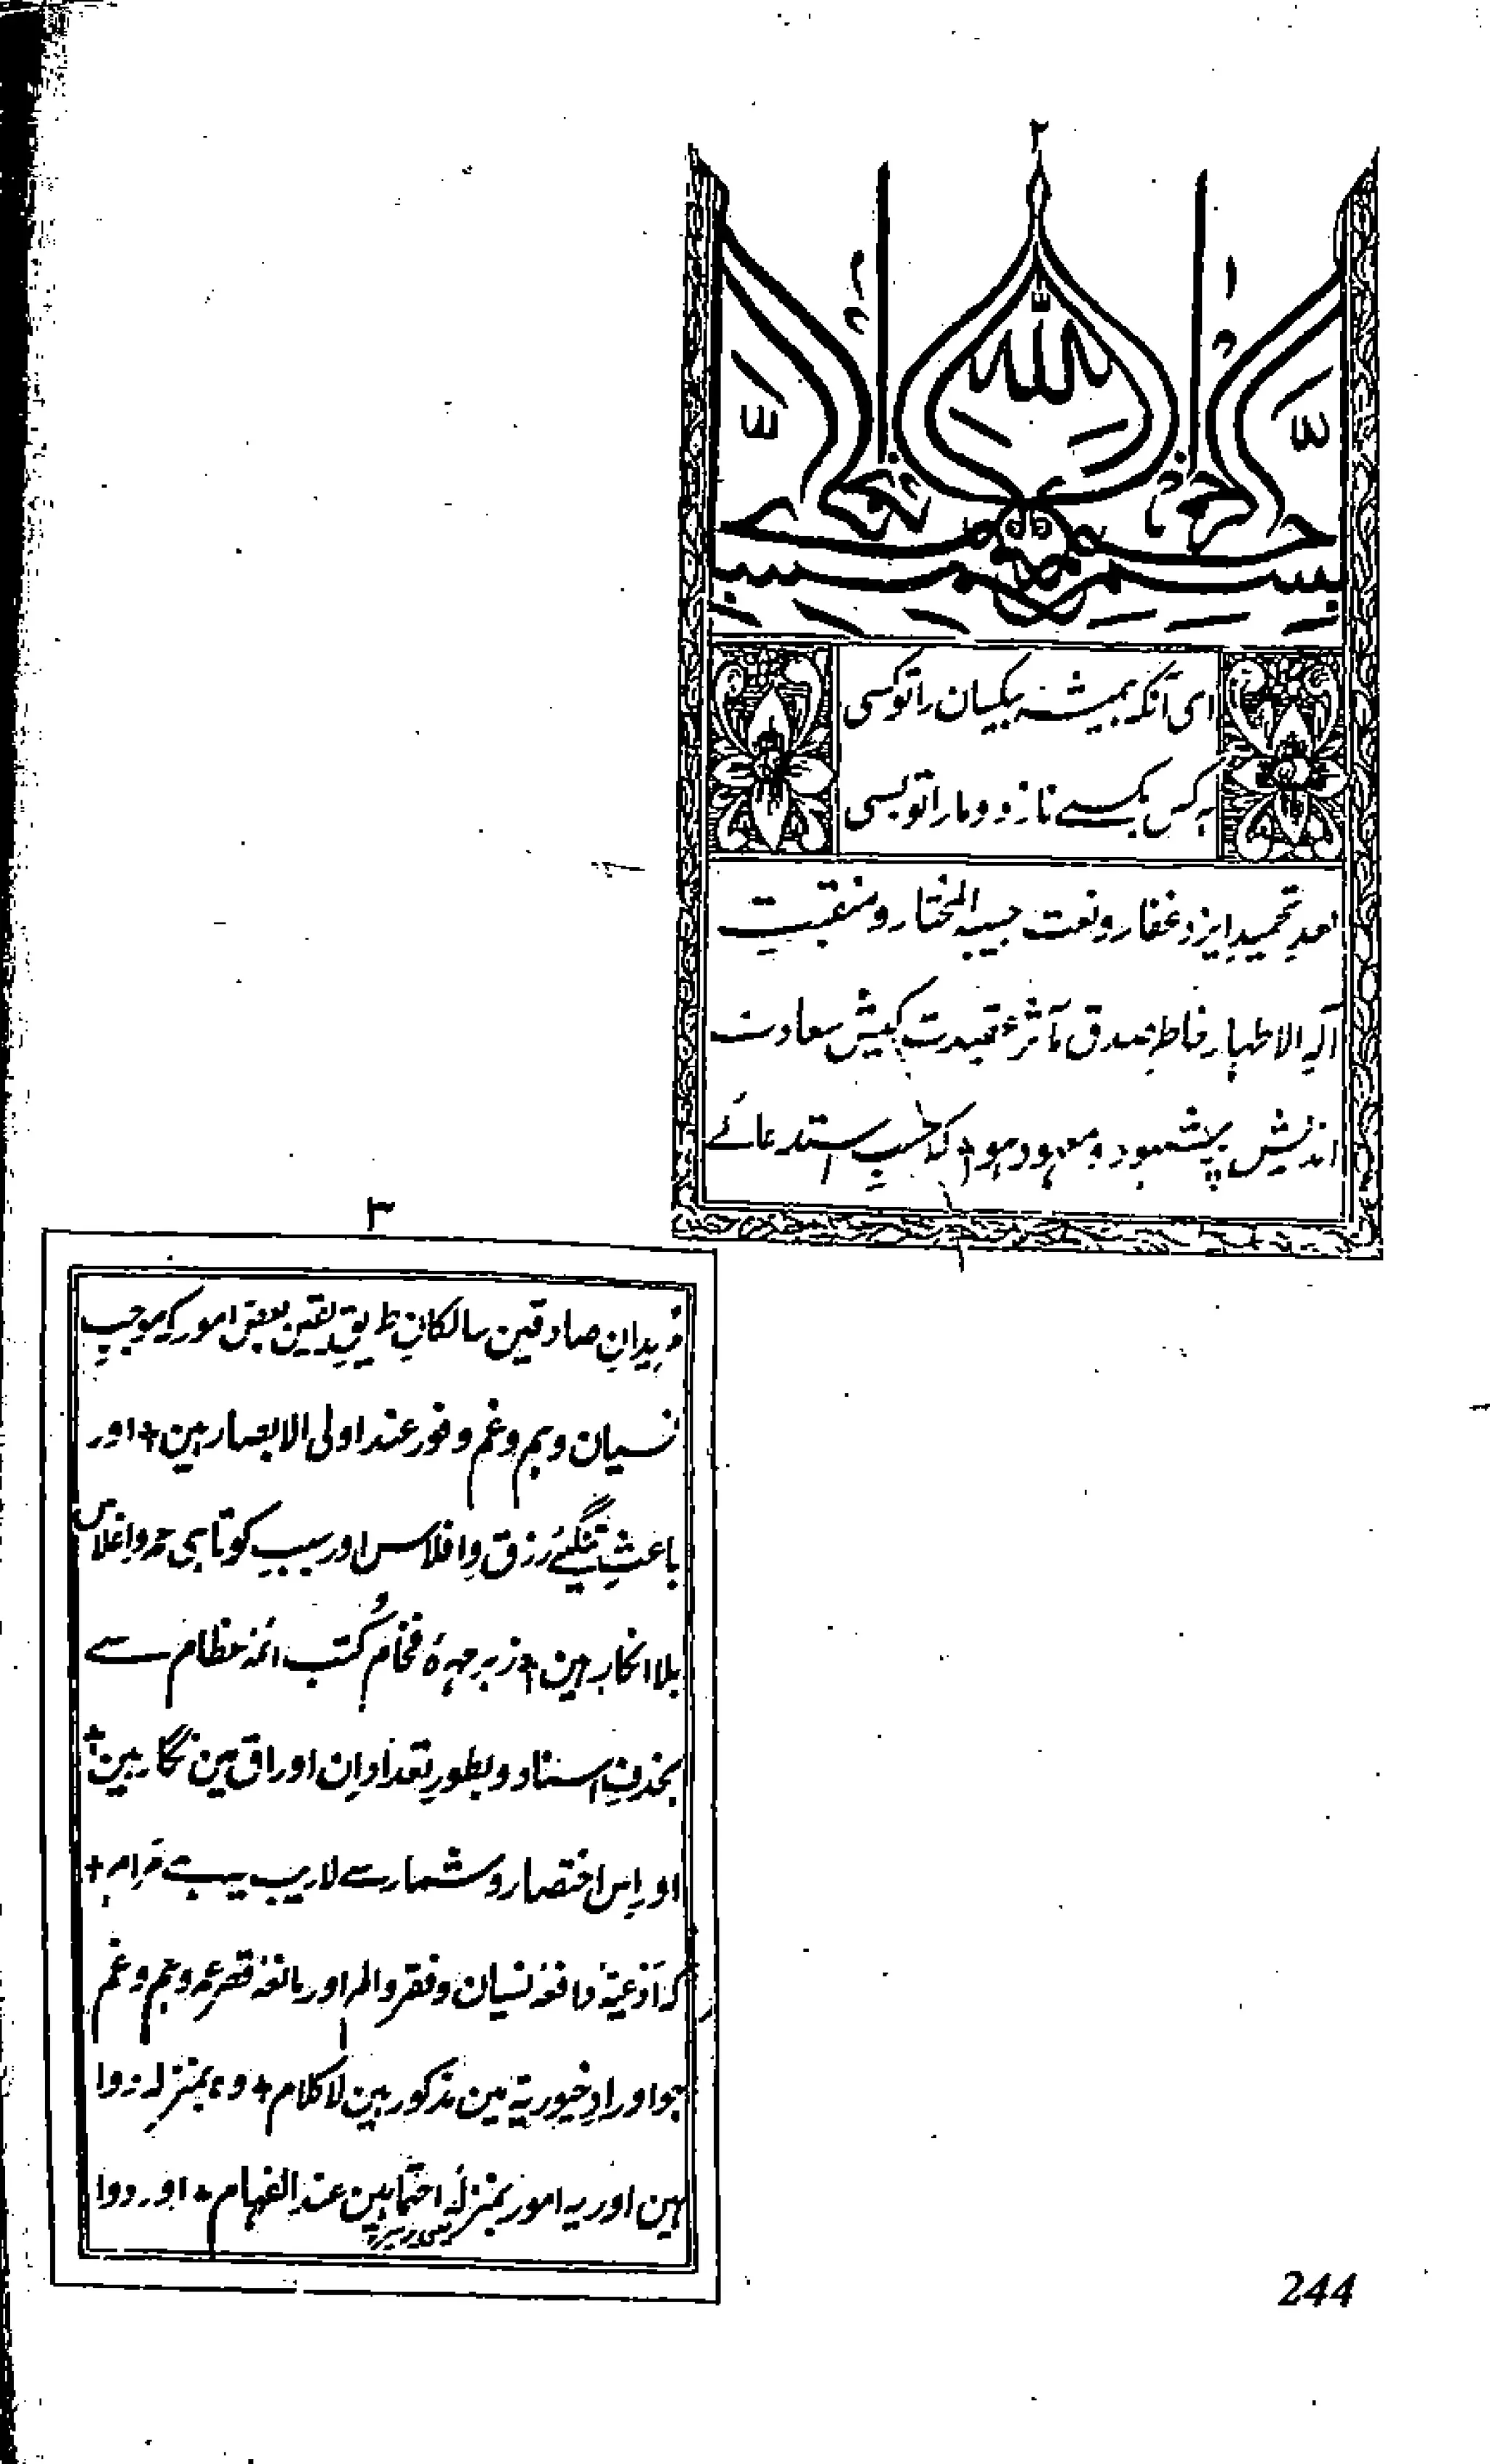 ۲
بسم الله الرحمن الرحیم
ای آنکہ ہمیشہ بیکسان را تو کسی
ہر کس بکسے نازد و مارا تو بسی
بعدِ تحمیدِ ایزد غفار و نعت حبیبہ المختار و منقبت
آلہِ الاطہار خاطرِ صدق مآثر عقیدت کیش سعادت
اندیش پر مشہود و معہود ہو + کہ حسبِ استدعائے
۳
مریدانِ صادقین سالکانِ طریقِ یقین بعض امور کہ موجبِ
نسیان و ہم و غم و فور عند اولی الابصار ہین + اور
باعثِ تنگیٔ رزق و افلاس اور سببِ کوتاہی عمر و اغلاس
بلا انکار ہین + زبر جہرہ فخام و کتب ائمۂ عظام سے
بحذفِ اسناد و بطورِ تعداد اِن اوراق مین نگار ہین +
اور اِس اختصار و شمار سے لاریب یہہ ہے مرام +
کہ ادعیۂ دافعۂ نسیان و فقر و الم اور مانعۂ قصر عمر و ہم و غم
جو اورادِ خیوریہ مین مذکور ہین لاکلام + وہ بمنزلہ دوا
ہین اور یہ امور بمنزلۂ احتما ہین عند الفہام + اور دوا
244